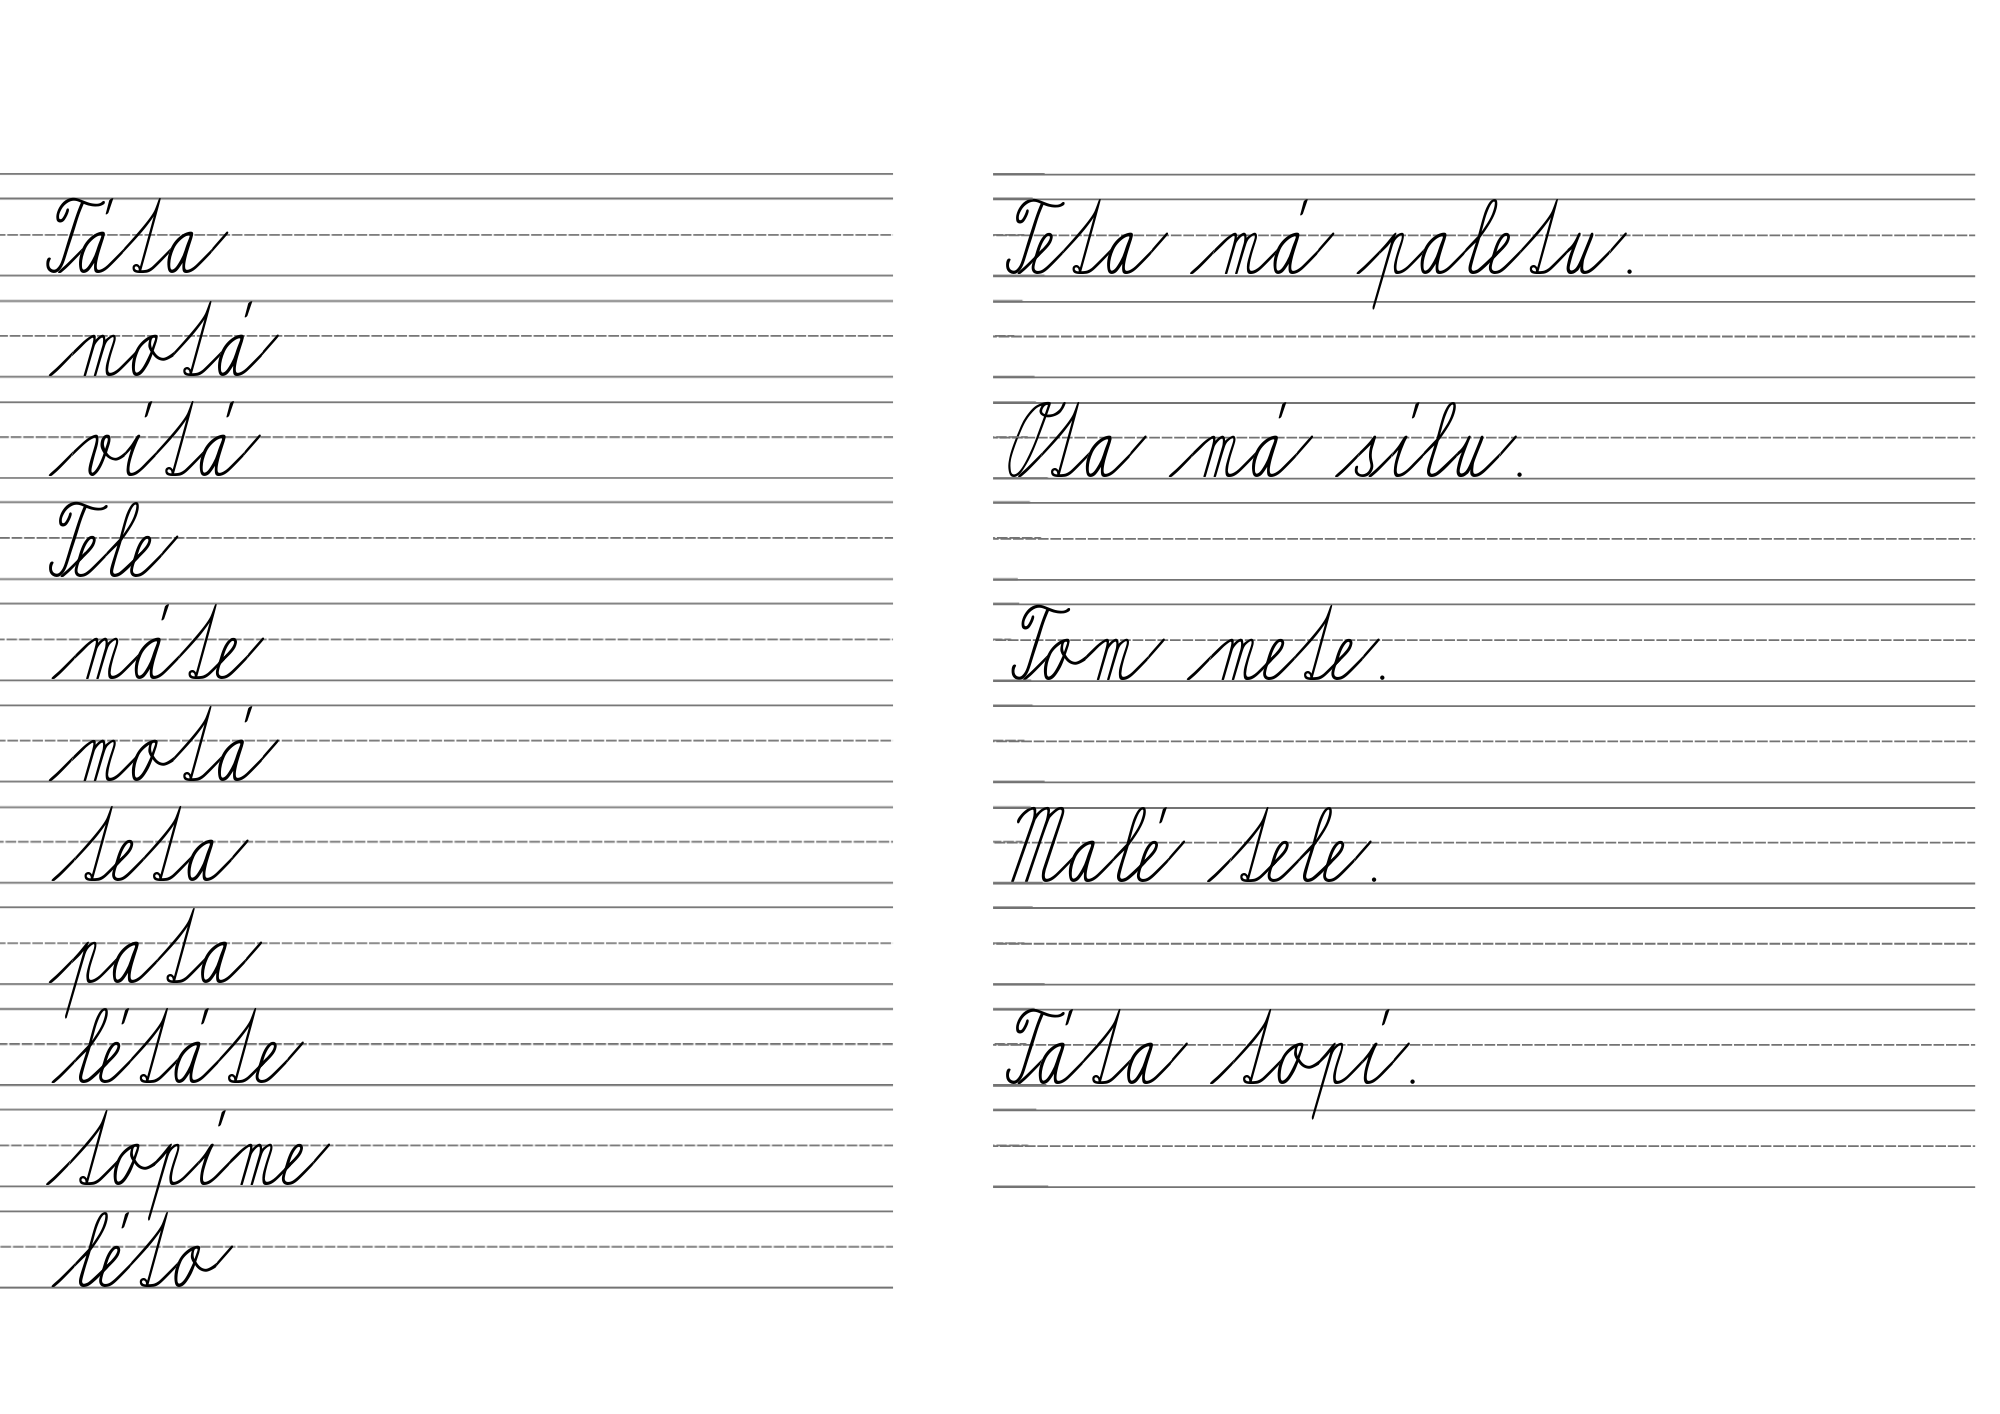 Táta
motá
vítá
Tele
máte
motá
teta
pata
létáte
topíme
léto
Teta má paletu.
Ota má sílu.
Tom mete.
Malé tele.
Táta topí.